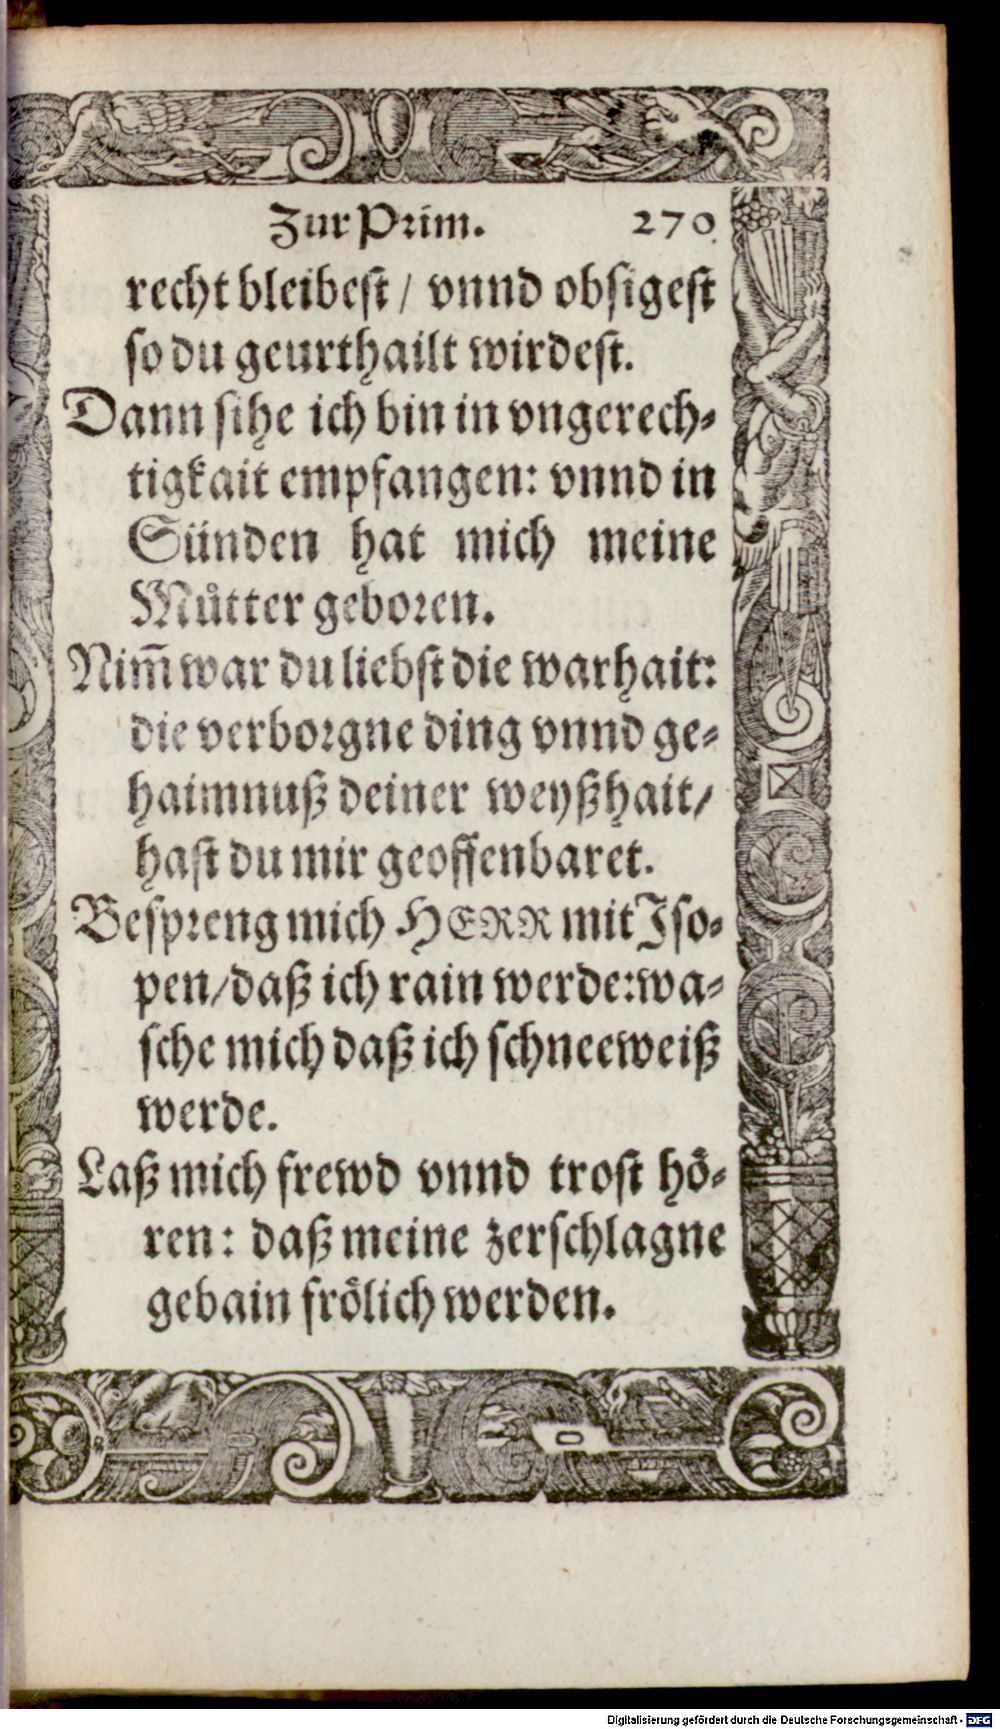 Zur Prim. 270.
recht bleibest / vnnd obsigest
so du geurthailt wirdest.
Dann sihe ich bin in vngerech-
tigkait empfangen: vnnd in
Sünden hat mich meine
Můtter geboren.
Nim̃ war du liebst die warhait:
die verborgne ding vnnd ge-
haimnuß deiner weyßhait/
hast du mir geoffenbaret.
Bespreng mich HERR mit Iso-
pen/daß ich rain werde: wa-
sche mich daß ich schneeweiß
werde.
Laß mich frewd vnnd trost hö-
ren: daß meine zerschlagne
gebain frölich werden.
Digitalisierung gefördert durch die Deutsche Forschungsgemeinschaft - DFG